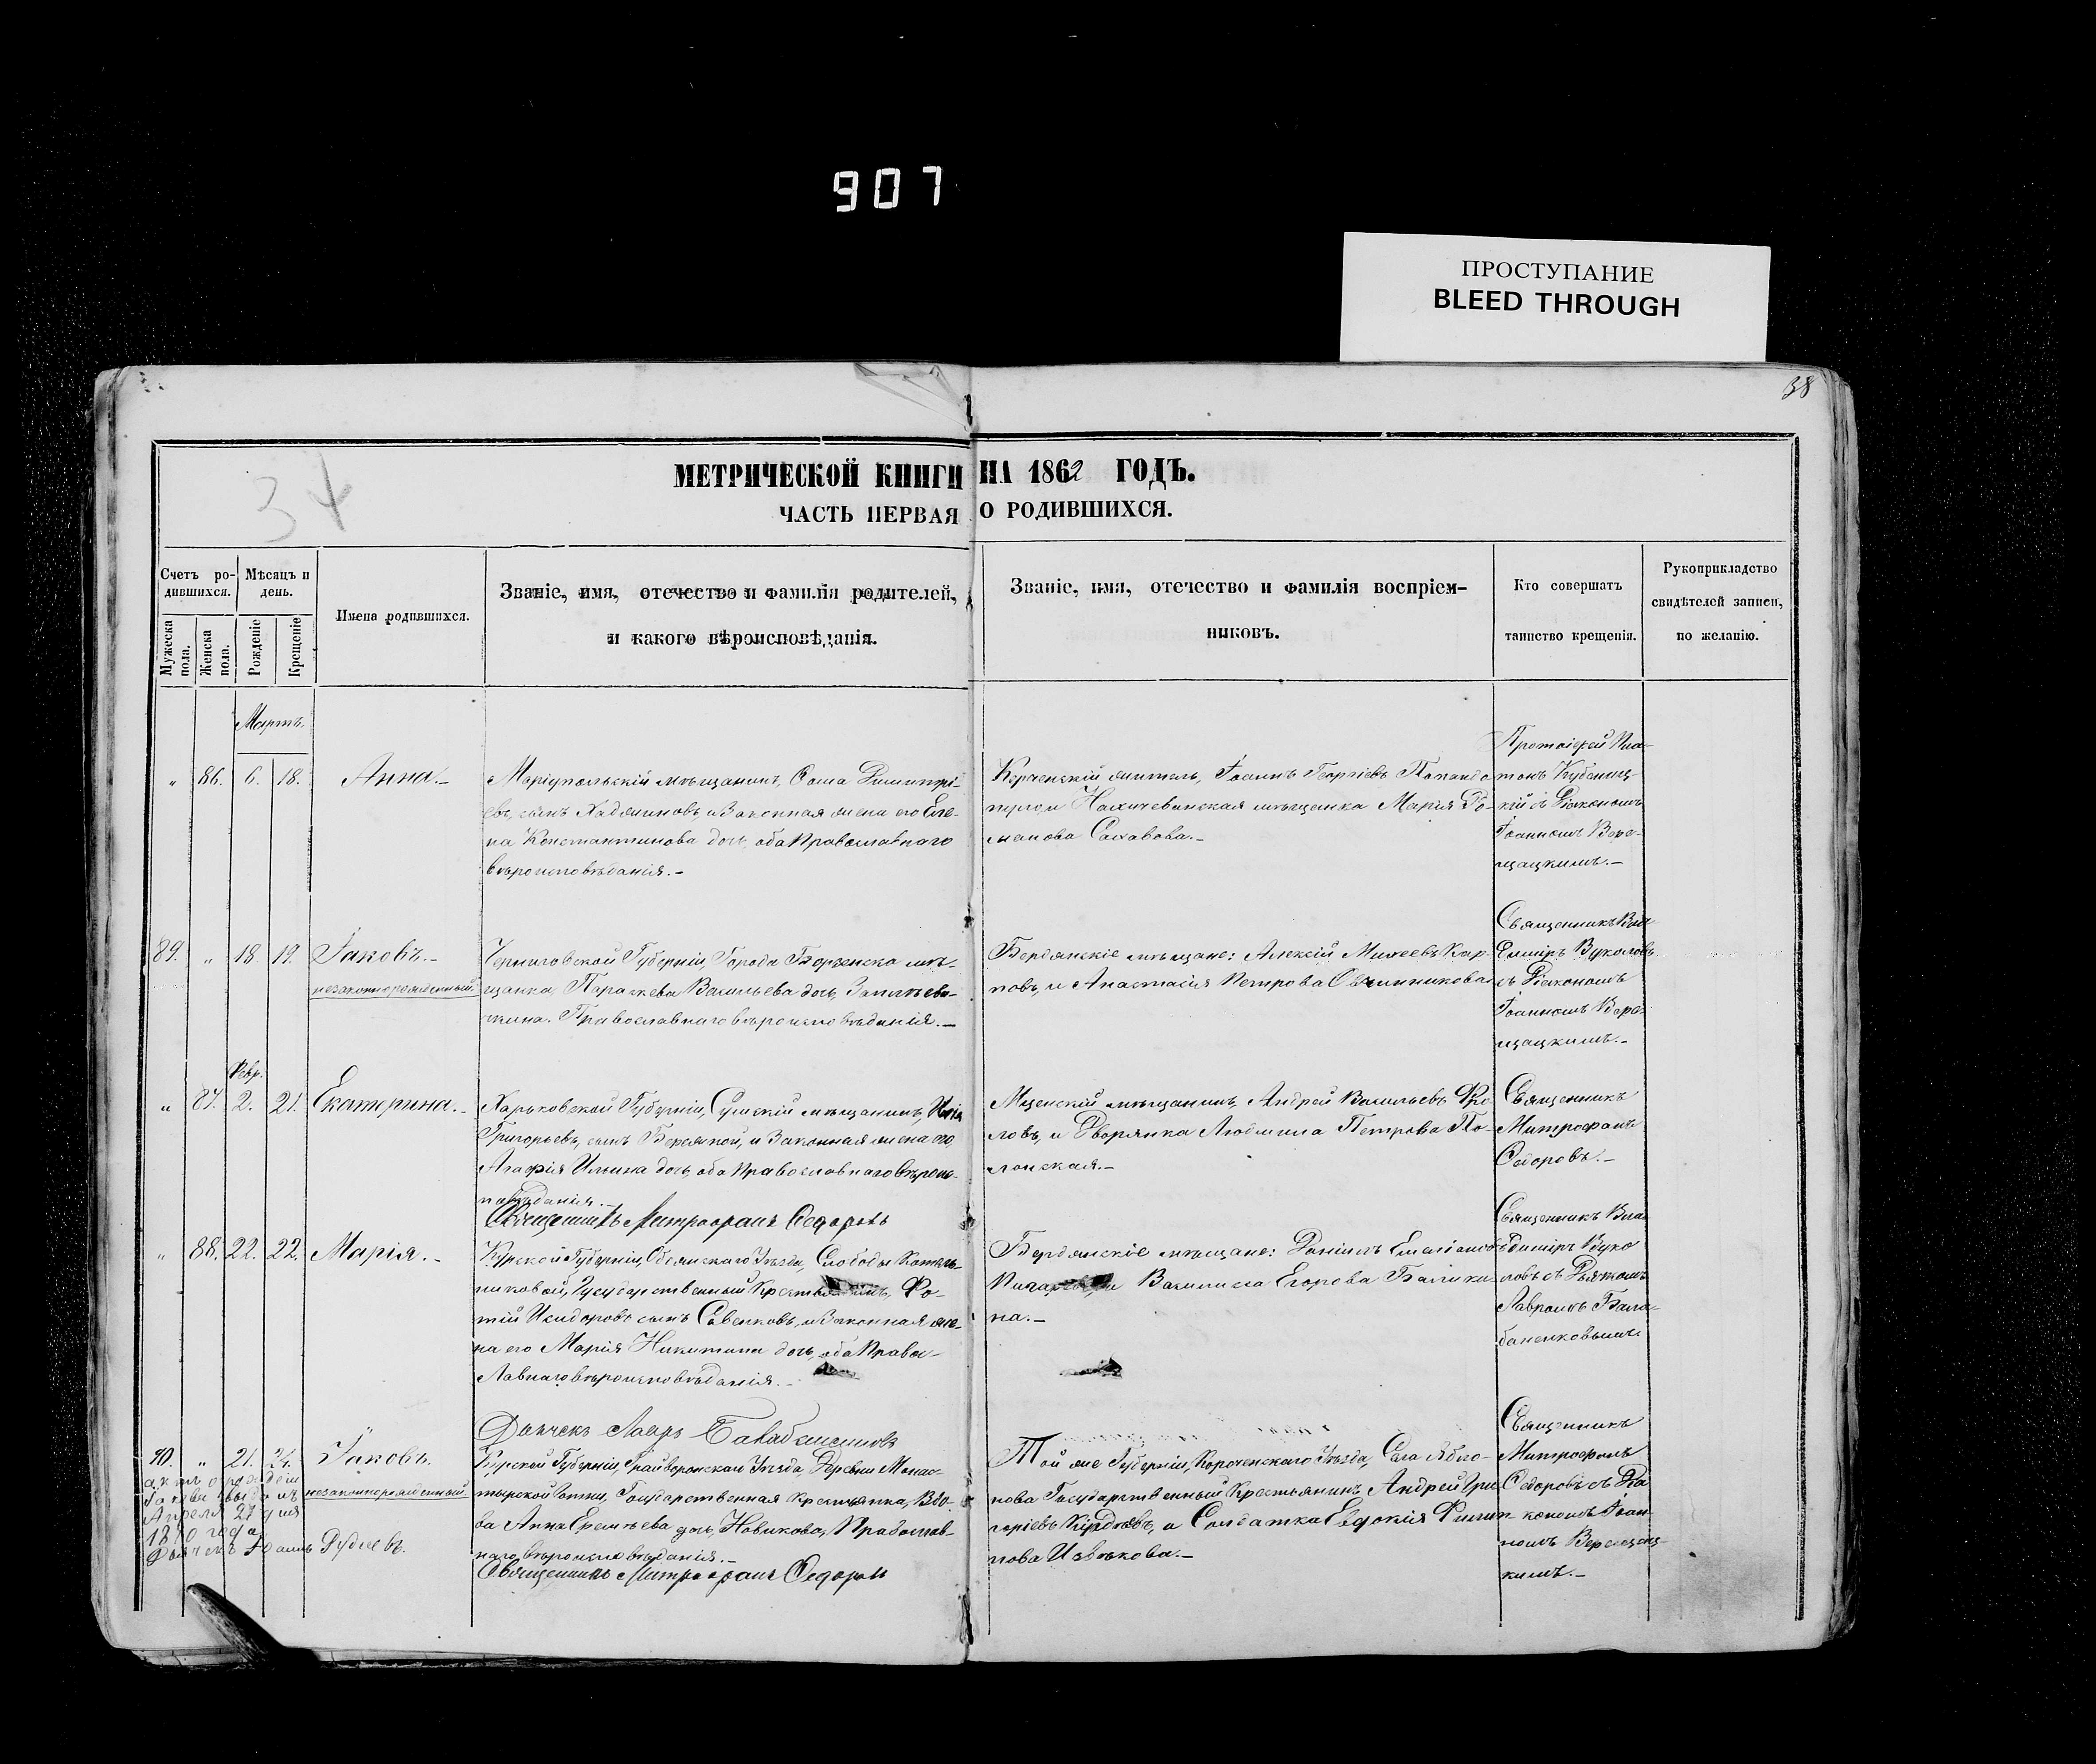 907
ПРОСТУПАНИЕ
BLEED THROUGH
38
34
МЕТРИЧЕСКОЙ КНИГИ НА 1862 ГОДЪ.
ЧАСТЬ ПЕРВАЯ О РОДИВШИХСЯ.
Счетъ ро-
дившихся.
Мужеска пола.
Женска пола.
Мѣсяцъ и
день.
Рожденіе
Крещеніе
Имена родившихся.
Званіе, имя, отечество и фамилія родителей,
и какого вѣроисповѣданія.
Званіе, имя, отечество и фамилія воспріем-
никовъ.
Кто совершатъ
таинство крещенія.
Рукоприкладство
свидѣтелей записи,
по желанію.
Мартъ.
" 86. 6. 18. Анна.-
Маріупольскій мѣщанинъ, Ѳома Димитрі-
евъ, сынъ Хаджиновъ, и Законная жена его Еле-
на Константинова дочь, оба Православнаго
вѣроисповѣданія.-
Керченскій житель, Іоаннъ Георгіевъ Попандо
пуло, и Нахичеванская мѣщанка Марія Ро-
манова Сахавова.-
Протоіерей Пла-
тонъ
кій съ Діакономъ
Іоанномъ Вере-
щацкимъ.-
89. " 18. 19. Іаковъ.-
незаконнорожденный.
Черниговской Губерніи, Города Борзенска мѣ-
щанка, Параскева Васильева дочь,
Православнаго вѣроисповѣданія.-
Бердянскіе мѣщане: Алексій Михеевъ Кар-
повъ, и Анастасія Петрова Овчинникова
Священникъ Вла
димиръ Вуколовъ
съ Діакономъ
Іоанномъ Вере-
щацкимъ.-
Февр.
" 87. 2. 21. Екатерина.-
Харьковской Губерніи, Сумскій мѣщанинъ, Илія
Григорьевъ, сынъ Бережной, и Законная жена его
Агафія Ильина дочь, оба Православнаго вѣроис-
повѣданія.-
Священникъ Митрофанъ Ѳедоровъ
Мценскій мѣщанинъ, Андрей Васильевъ Фро
ловъ, и Дворянка Людмила Петрова По-
лонская.-
Священникъ
Митрофанъ
Ѳедоровъ.-
" 88. 22. 22. Марія.-
Курской Губерніи, Обоянскаго Уѣзда, Слободы Котель-
никовой, Государственный Крестьянинъ, Фо-
тій Исидоровъ сынъ Савенковъ, и Законная же-
на его Марія Никитина дочь, оба Право-
славнаго вѣроисповѣданія.-
Бердянскіе мѣщане: Даніилъ Емеліановъ
и Василиса Егорова Балики
на.-
Священникъ Вла
димиръ Вуко
ловъ съ Дьячкомъ
Лавромъ Бала-
баненковымъ
Дьячекъ Лавръ
90. " 21. 24. Іаковъ.
незаконнорожденный.
Курской Губерніи, Грайворонскаго Уѣзда, Деревни Монас-
тырской Готни, Государственная Крестьянка, Вдо-
ва Анна Еремѣева дочь, Новикова, Православ-
наго вѣроисповѣданія.-
Священникъ Митрофанъ Ѳедоровъ
Той же Губерніи, Короченскаго Уѣзда, Села Ябло-
нова Государственный Крестьянинъ Андрей Гри
горіевъ и Солдатка Евдокія Филип
пова Извѣкова.-
Священникъ
Митрофанъ
Ѳедоровъ съ Діа
кономъ Іоан-
номъ Верещац-
кимъ.-
актъ о рожденіи
Іакова выданъ
Апреля 27 дня
1870 года
Дьячекъ Іоаннъ Рудневъ.